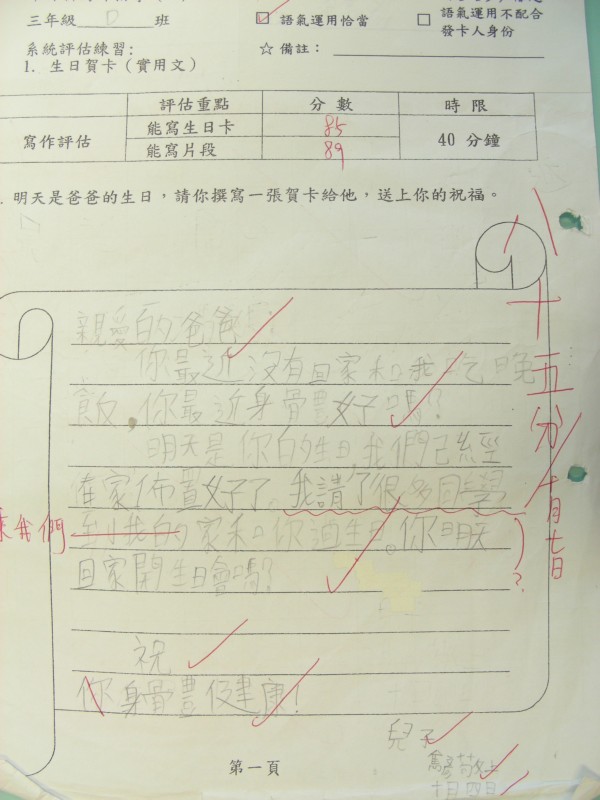 三年級 D 班
語氣運用恰當
語氣運用不配合
發卡人身份
系統評估練習:
☆ 備註:
1. 生日賀卡（實用文）
評估重點 分數 時限
寫作評估 能寫生日卡 85 40 分鐘
能寫片段 89
明天是爸爸的生日，請你撰寫一張賀卡給他，送上你的祝福。
八十五分
十月七日
親愛的爸爸:
你最近没有回家和我吃晚
飯，你最近身體好嗎?
明天是你的生日,我們已經
在家佈置好了。我請了很多同學
來我們
到我的家和你過生日。你明天
回家開生日會嗎?
?
祝
你身體健康!
兒子
敬上
十月四日
第一頁